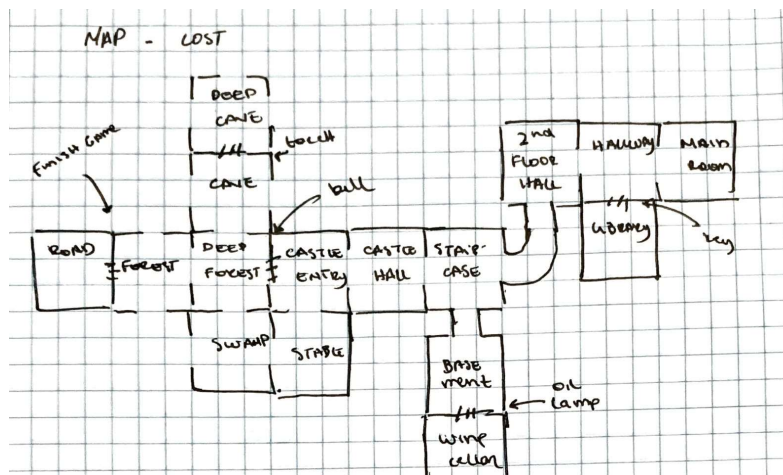 MAP - LOST
DEEP
CAVE
torch
CAVE
FINISH GAME
bell
2nd
FLOOR
HALL
HALLWAY
MAIN
ROOM
LIBRARY
key
ROAD
FOREST
DEEP
FOREST
CASTLE
ENTRY
CASTLE
HALL
STAIR-
CASE
SWAMP
STABLE
BASE
ment
oil
lamp
wine
cellar